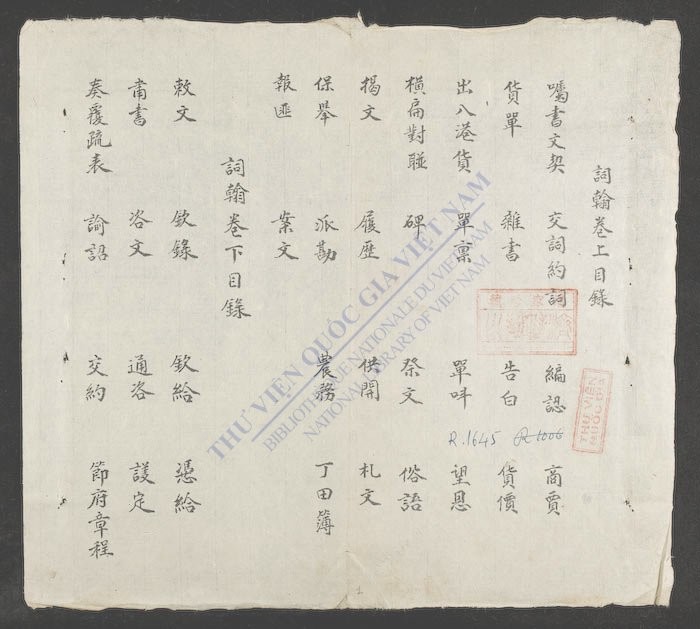 詞翰卷上目錄
囑書文契 交詞約詞 編認 商賈
貨單 雜書 告白 貨價
出入港貨 單稟 單叫 望恩
橫扁對聯 碑 祭文 俗語
揭文 履歷 供開 札文
保舉 派勘 農務 丁田簿
報匪 案文
詞翰卷下目錄
敕文 欽錄 欽給 憑給
肅書 咨文 通咨 護定
奏覆疏表 諭詔 交約 節府章程
R.1645
R 1006
THƯ VIỆN
QUỐC GIA
THƯ VIỆN QUỐC GIA VIỆT NAM
BIBLIOTHÈQUE NATIONALE DU VIETNAM
NATIONAL LIBRARY OF VIETNAM
1